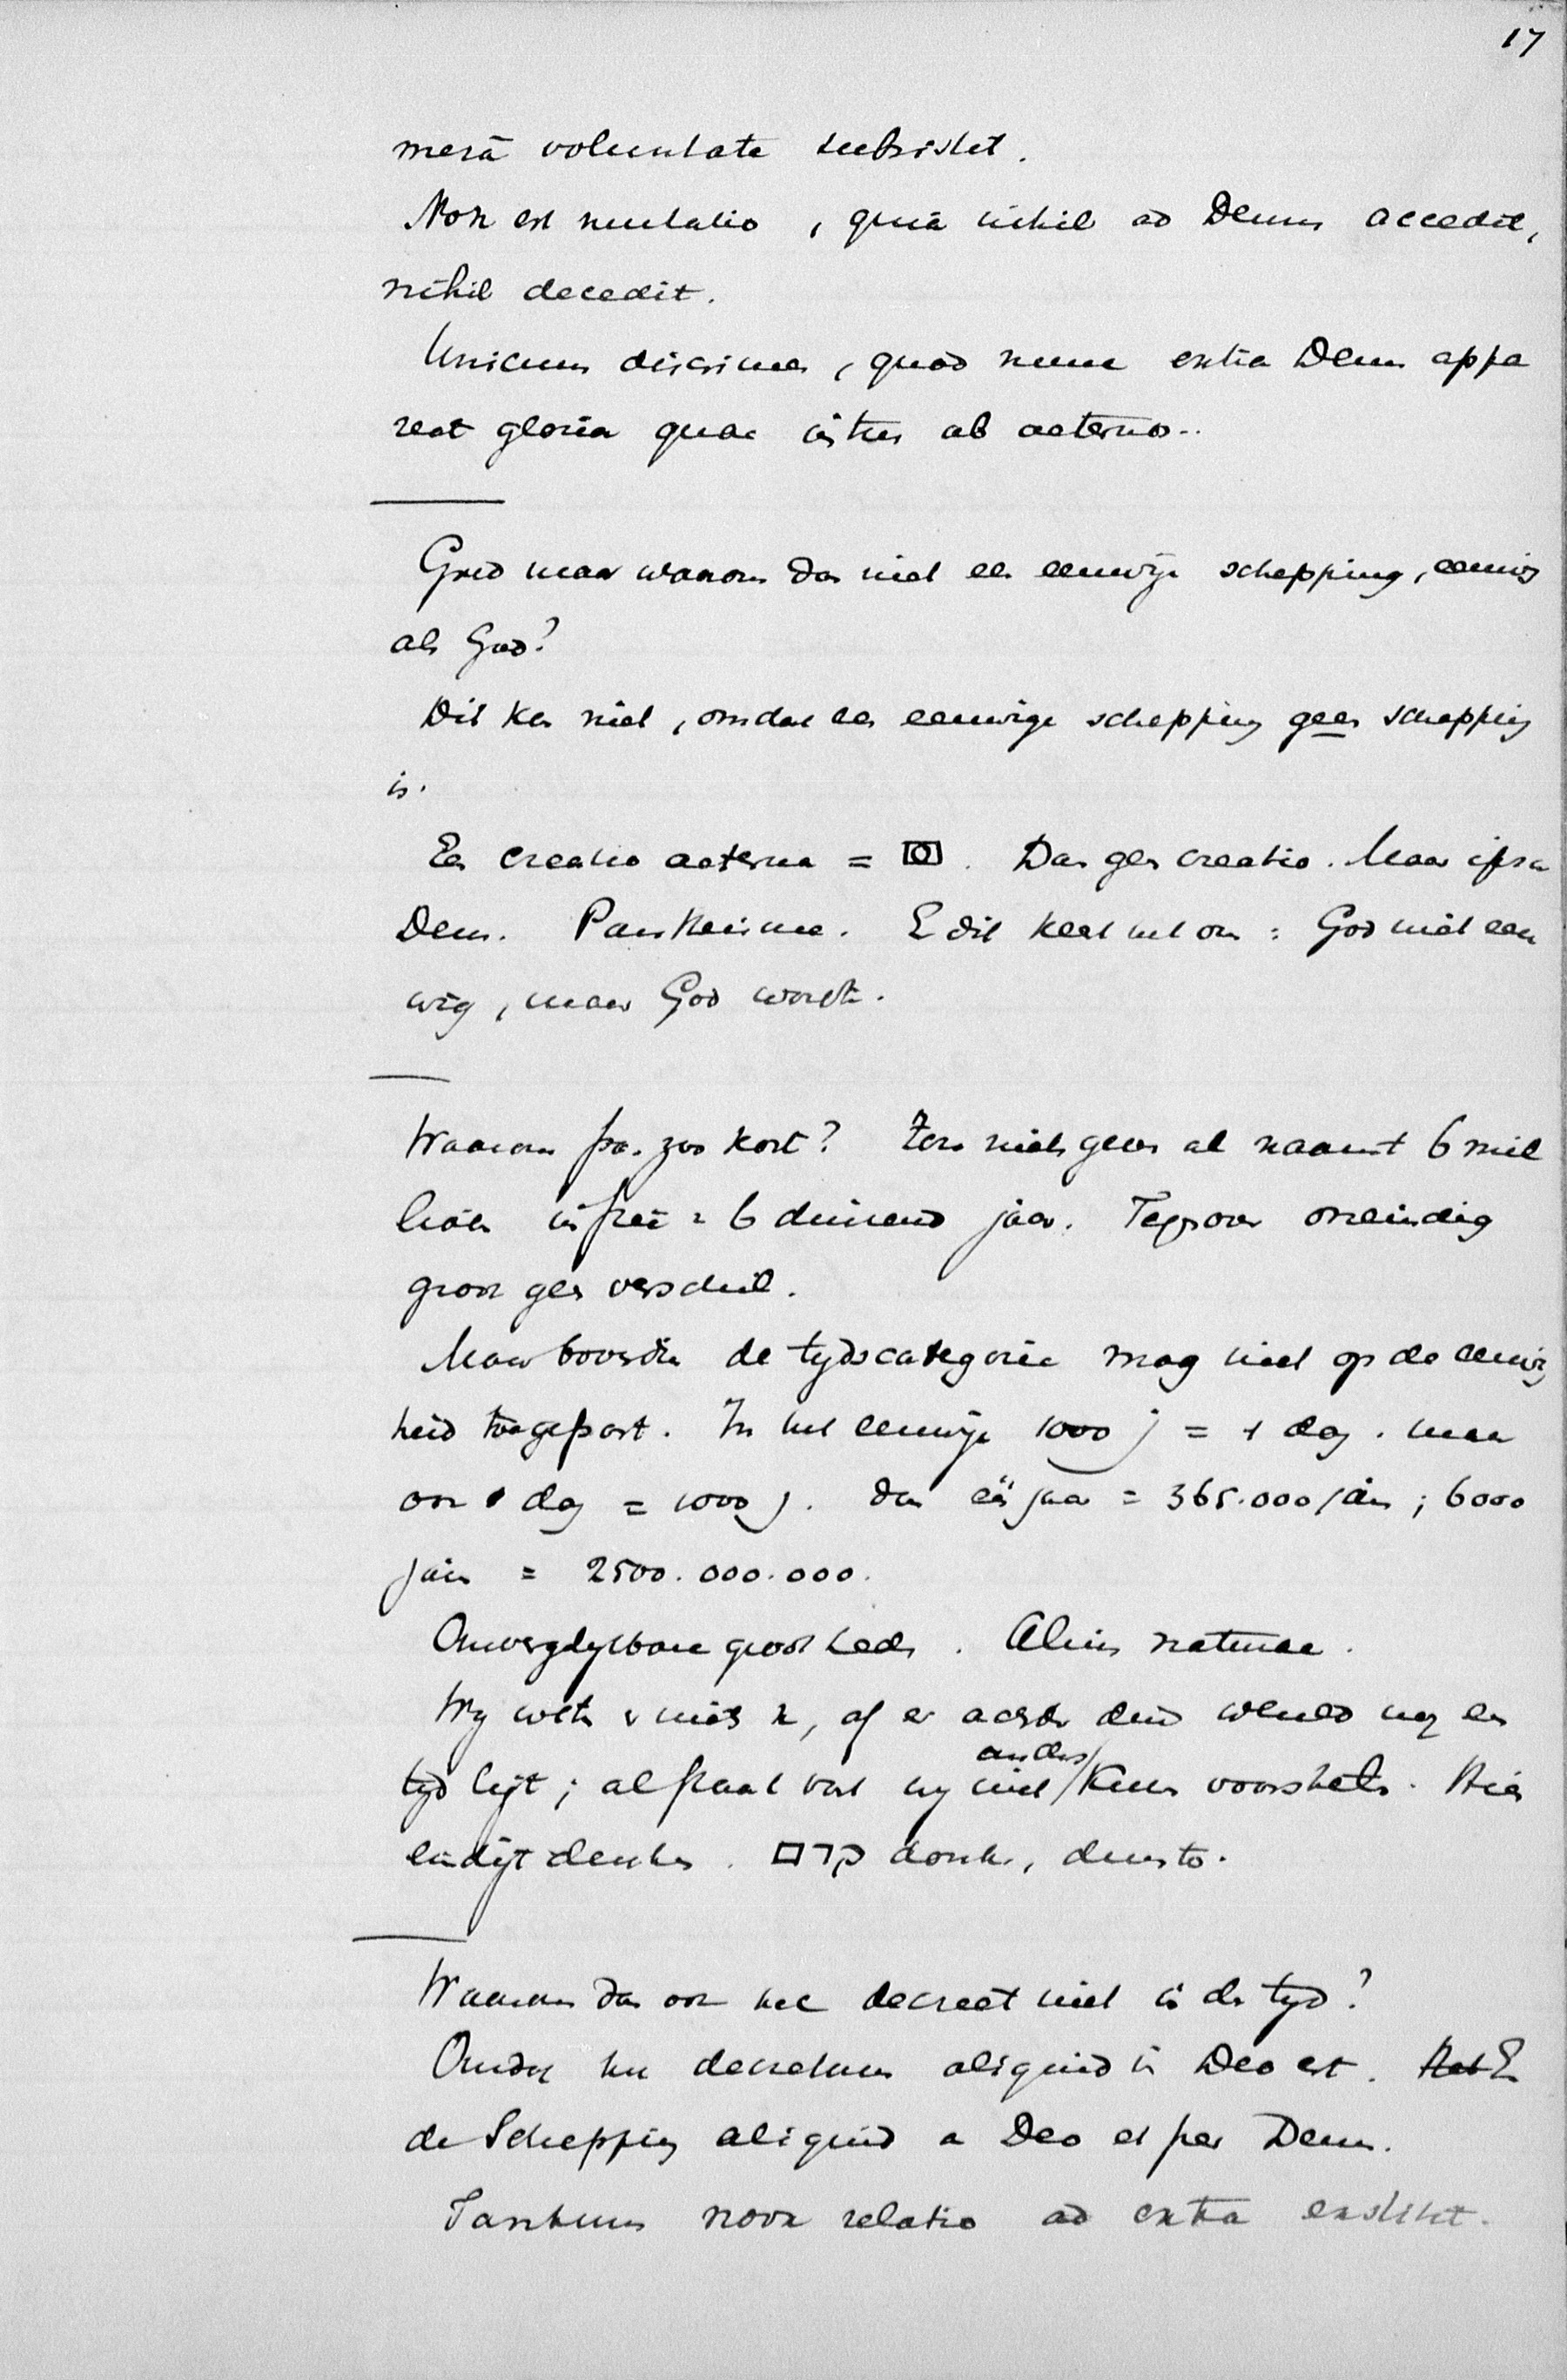 17
merā voluntate subsistet.
Non est mutatio, quia nihil ad Deum accedit,
nihil decedit.
Unicum discrimen, quod nunc extra Deum appa
reat gloria quae intus ab aeterno..
Goed maar waarom dan niet een eeuwige schepping, eeuwig
als God?
Dit kan niet, omdat een eeuwige schepping geen schepping
is.
Een creatio aeterna = . Dan geen creatio. Maar ipse
Deus. Pantheisme. En dit keert het om: God niet eeu
wig, maar God wordt.
Waarom zoo kort? niets geven al naamt 6 mil
lioen in = 6 duizend jaar. Tegenover oneindig
groot geen verschil.
Maar bovendien de tijdscategorie mag niet op de eeuwig
heid toegepast. In het eeuwige 1000 j = 1 dag. maar
ook 1 dag = 1000 j. dan een jaar = 365.000 jaren; 6000
jaren = 2500.000.000.
Onvergelijkbare grootheden. Alius naturae.
Wij weten niets, of er achter deze wereld nog een
tijd ligt; al staat vast wij niet anders kunnen voorstellen. Hier
eindigt denken.
Waarom dan ook het decreet niet in de tijd?
Omdat het decretum aliquid in Deo est. En
de Schepping aliquid a Deo et per Deum.
Tantum nova relatio ad extra existit.